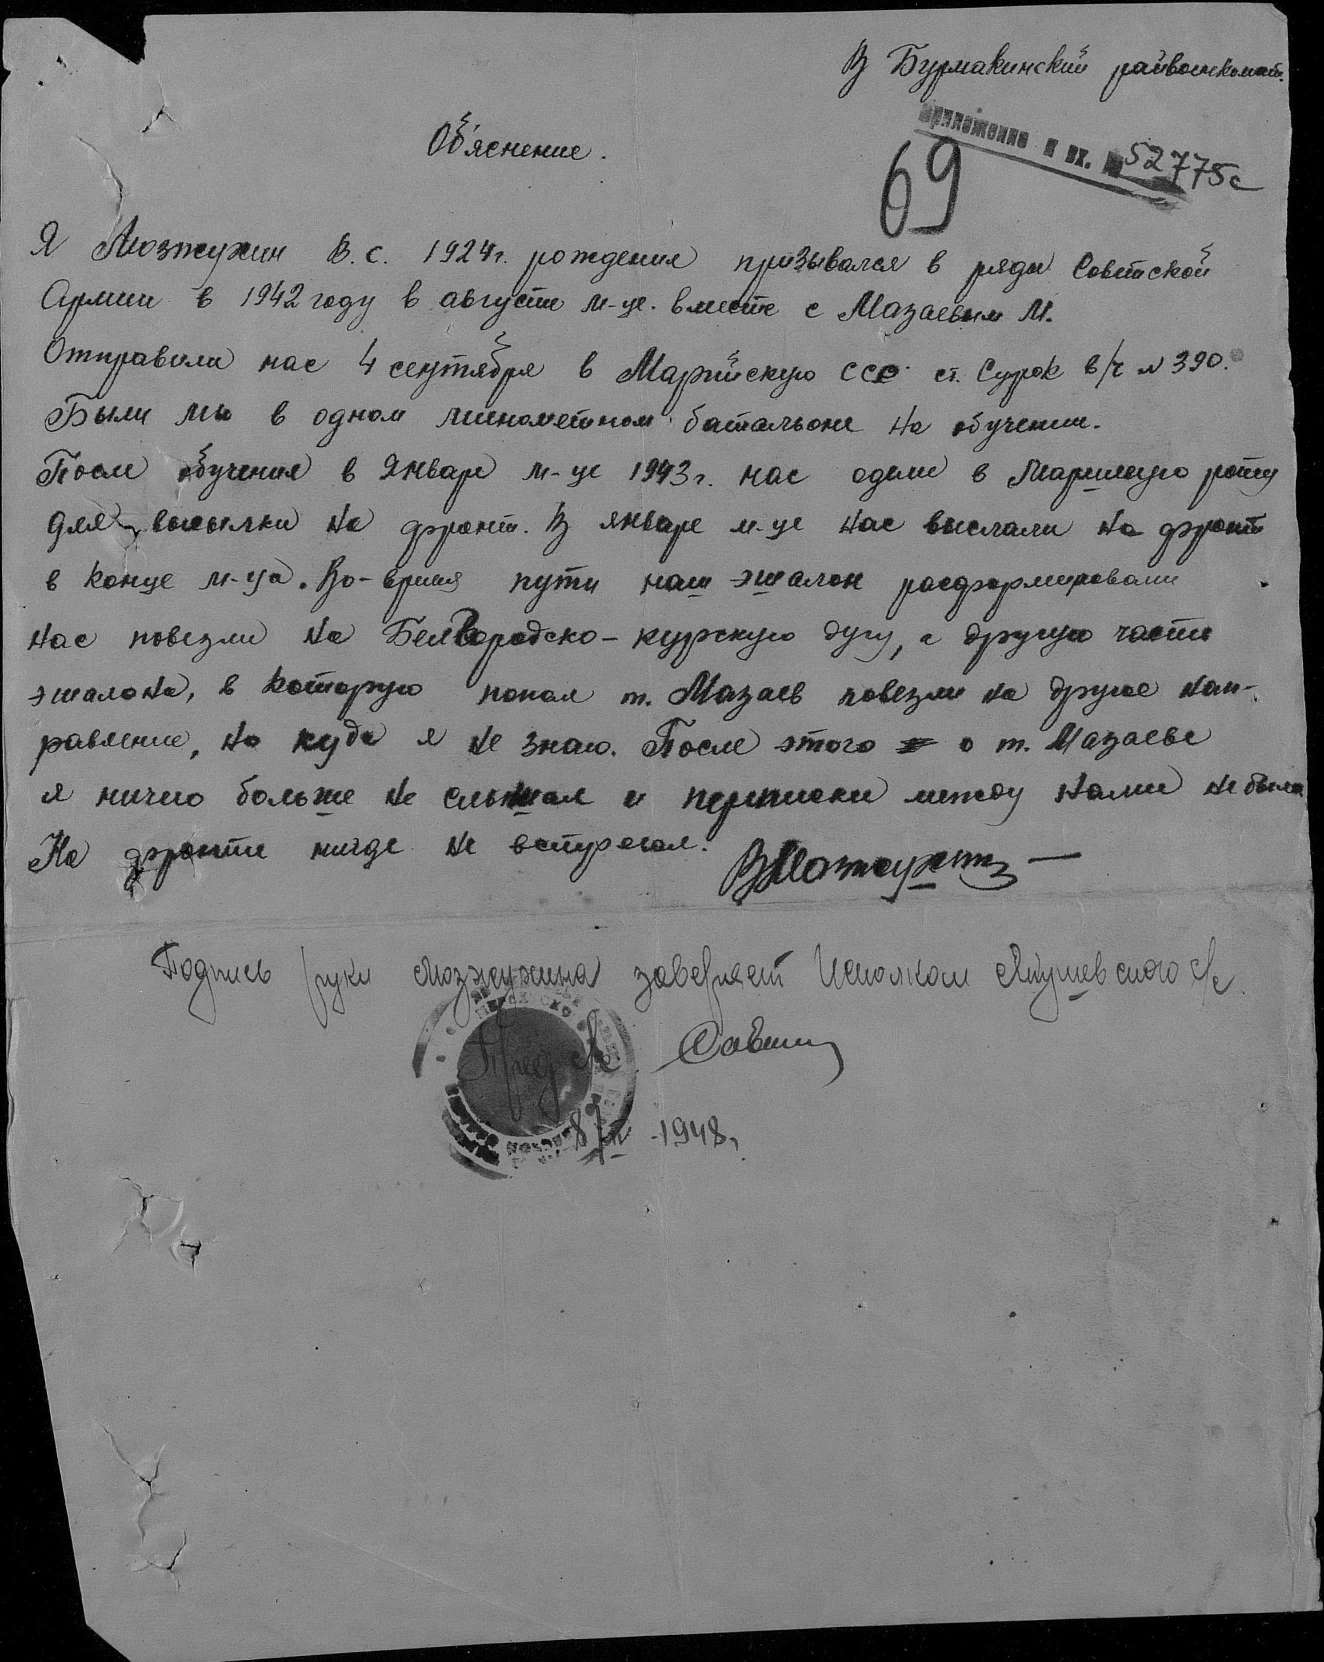 В Бурмакинский райвоенкомат.
Приложение к вх. № 52775с
69
Об'яснение.
Я Мозжухин В. С. 1924г. рождения призывался в ряды Советской
Армии в 1942 году в августе м-це. вместе с Мазаевым М.
Отправили нас 4 сентября в Марийскую ССР ст. Сурок в/ч № 390.
Были мы в одном минометном батальоне на обучении.
После обучения в Январе м-це 1943г. нас одели в Маршевую роту
для высылки на фронт. В январе м-це нас выслали на фронт
в конце м-ца. Во-время пути наш эшалон расформировали
нас повезли на Белгородско-курскую дугу, а другую часть
эшалона, в которую попал т. Мазаев повезли на другое нап-
равление, но куда я не знаю. После этого о т. Мазаеве
я ничего больше не слышал и переписки между нами не было
На фронте нигде не встречал.
ВМозжухин
Подпись руки Мозжухина заверяет Исполком с/с.
Пред с/с Савин
8/ 1948г.